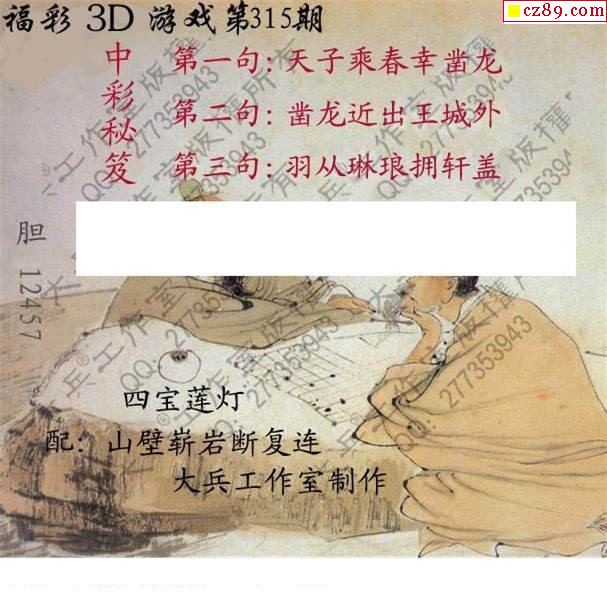 福彩 3D 游戏 第315期
cz89.com
中彩秘笈
第一句：天子乘春幸凿龙
第二句：凿龙近出王城外
第三句：羽从琳琅拥轩盖
胆 12457
四宝莲灯
配：山壁崭岩断复连
大兵工作室制作
大兵®工作室版權所有
QQ：277353943